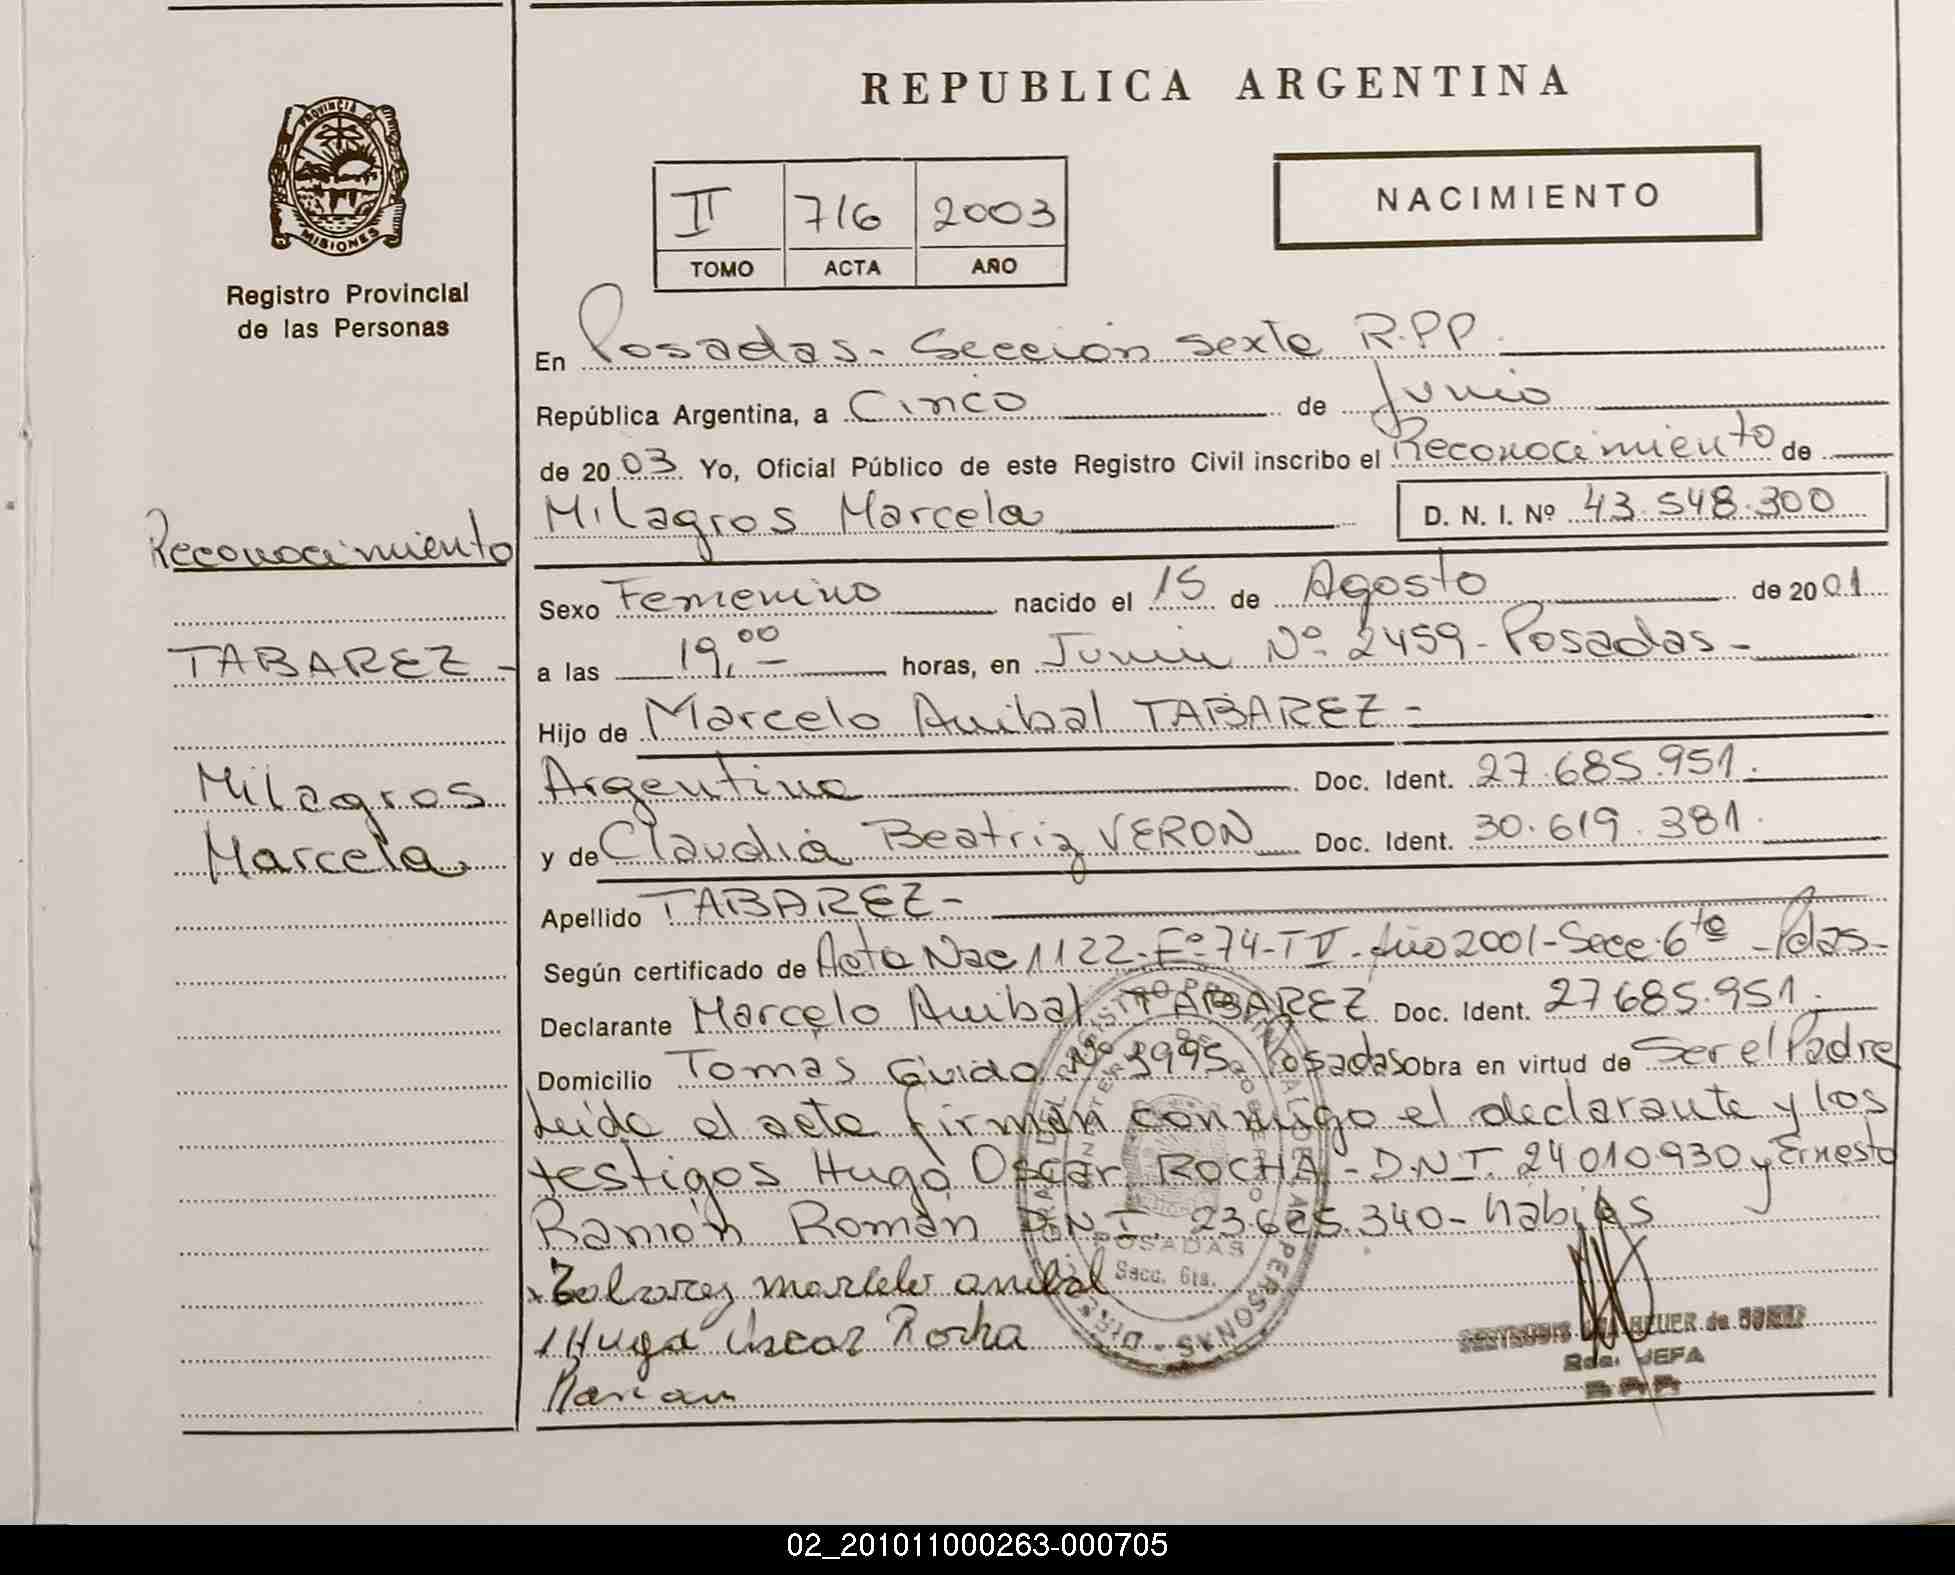 REPUBLICA ARGENTINA
PROVINCIA DE
MISIONES
Registro Provincial
de las Personas
NACIMIENTO
II 716 2003
TOMO ACTA AÑO
En Posadas - Sección sexta R.P.P.
República Argentina, a Cinco de Junio
de 2003 Yo, Oficial Público de este Registro Civil inscribo el Reconocimiento de
Milagros Marcela D. N. I. Nº 43.548.300
Reconocimiento
TABAREZ -
Milagros
Marcela
Sexo Femenino nacido el 15 de Agosto de 2001
a las 19,00 horas, en Junin Nº 2459 - Posadas -
Hijo de Marcelo Anibal TABAREZ -
Argentino Doc. Ident. 27.685.951.
y de Claudia Beatriz VERON Doc. Ident. 30.619.381.
Apellido TABAREZ -
Según certificado de Acta Nac 1122 - Fº 74 - T V - Año 2001 - Secc. 6ta - Pdas -
Declarante Marcelo Anibal TABAREZ Doc. Ident. 27685.951.
Domicilio Tomas Guido Nº 3995 Posadas obra en virtud de Ser el Padre
Leida el acta firman conmigo el declarante y los
testigos Hugo Oscar ROCHA - D.N.I. 24010930 y Ernesto
Ramón Roman D.N.I. 23.685.340 - habiles
Tabarez marcelo anibal
Hugo Oscar Rocha
POSADAS
Secc. 6ta.
BEUER de
JEFA
02_201011000263-000705